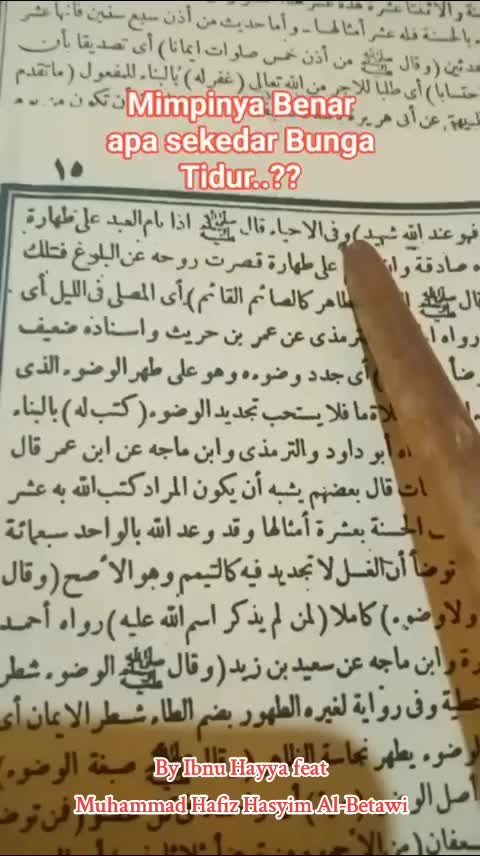 بالحسنة فله عشر أمثالها ـ وأما حديث من أذن سبع سنين فانها عشر
(وقال ﷺ من أذن خمس صلوات ايمانا) أى تصديقا بأن
أى طلبا للاجر من الله تعالى (غفر له) بالبناء للمفعول (ما تقدم
عن أبى هريرة
Mimpinya Benar
apa sekedar Bunga
Tidur..??
١٥
فهو عند الله شهيد) وفى الاحياء قال ﷺ اذا نام العبد على طهارة
صادقة على طهارة قصرت روحه عن البلوغ فتلك
قال ﷺ كالصائم القائم) أى المصلى فى الليل أى
رواه عن عمر بن حريث واسناده ضعيف
أى جدد وضوءه وهو على طهر الوضوء الذى
فلا يستحب تجديد الوضوء (كتب له) بالبناء
أبو داود والترمذى وابن ماجه عن ابن عمر قال
قال بعضهم يشبه أن يكون المراد كتب الله به عشر
الحسنة بعشرة أمثالها وقد وعد الله بالواحد سبعمائة
توضأ أن الغسل لا تجديد فيه كالتيمم وهو الأصح (وقال
ولا وضوء) كاملا (لمن لم يذكر اسم الله عليه) رواه أحمد
وابن ماجه عن سعيد بن زيد (وقال ﷺ الوضوء شطر
عطية وفى رواية لغيره الطهور بضم الطاء شطر الايمان أى
الوضوء يطهر نجاسة
By Ibnu Hayya feat
Muhammad Hafiz Hasyim Al-Betawi